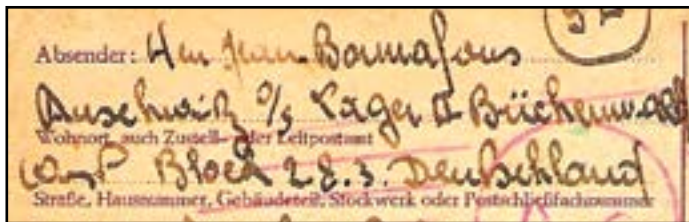 Absender: Herr Jean Bonnafous
Auschwitz O/S Lager II Büchenwald
Wohnort, auch Zustell- oder Leitpostamt
Camp Block 2 E. 3. Deutschland
Straße, Hausnummer, Gebäudeteil, Stockwerk oder Postschließfachnummer